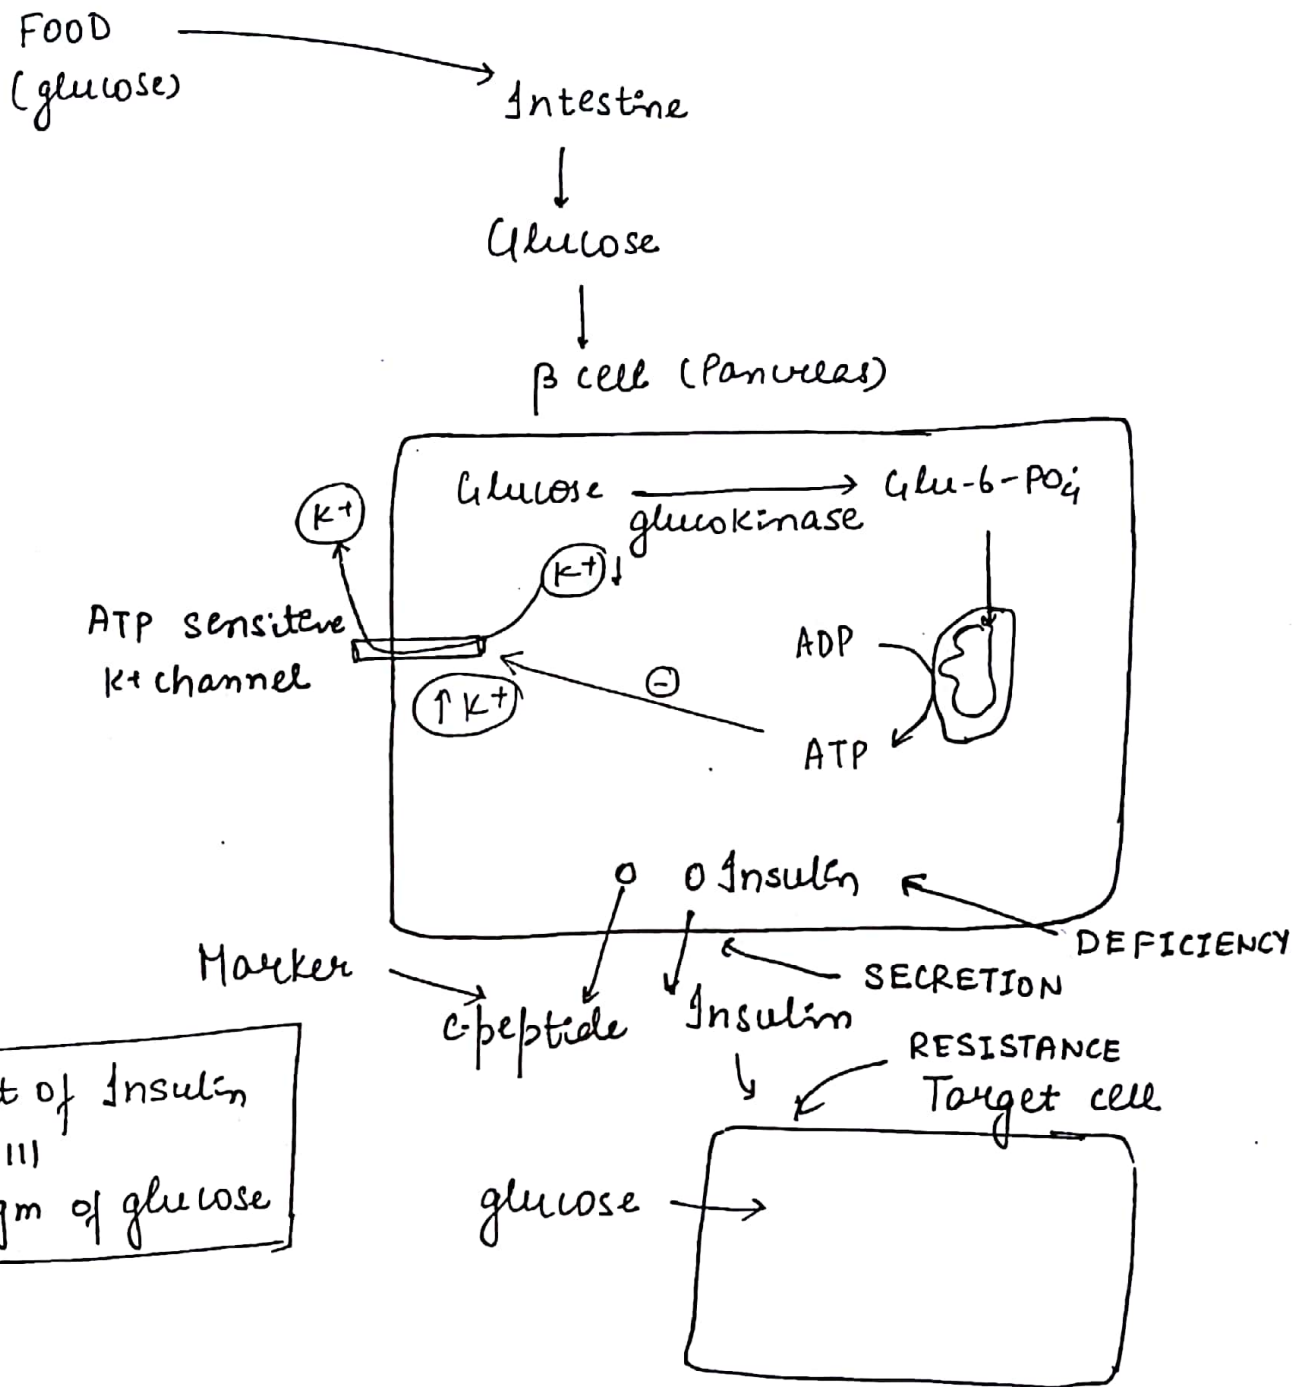 FOOD
(glucose)
Intestine
Glucose
β cell (Pancreas)
Glucose
glucokinase
Glu-6-PO4
K+
K+ ↓
ATP sensitive
K+ channel
↑ K+
⊖
ADP
ATP
Insulin
DEFICIENCY
SECRETION
Marker
c-peptide
Insulin
RESISTANCE
Target cell
of Insulin
of glucose
glucose